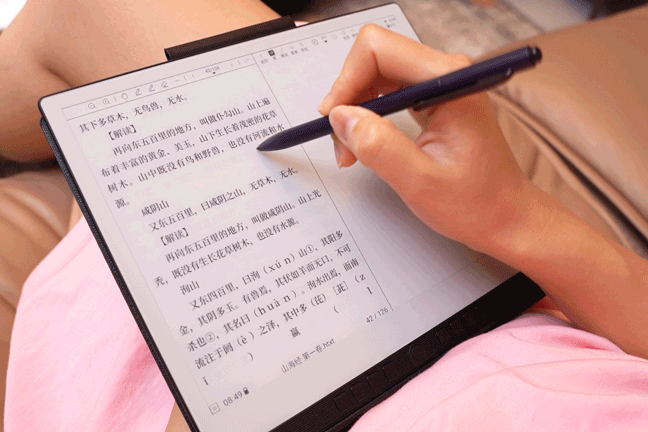 42/126
其下多草木,无鸟兽,无水。
【解读】
再向东五百里的地方,叫做仆勾山。山上遍
布着丰富的黄金、美玉,山下生长着茂密的花草
树木。山中既没有鸟和野兽,也没有河流和水
源。
咸阴山
又东五百里,曰咸阴之山,无草木,无水。
【解读】
再向东五百里的地方,叫做咸阴山。山上光
秃,既没有生长花草树木,也没有水源。
洵山
又东四百里,曰洵(xún)山①,其阳多
金,其阴多玉。有兽焉,其状如羊而无口,不可
杀也②,其名曰(huàn)。洵水出焉,而南
流注于阏(è)之泽,其中多(茈)[茈](z
ǐ ) 蠃 ( l
42 / 126
山海经 第一卷.htxt
08:49